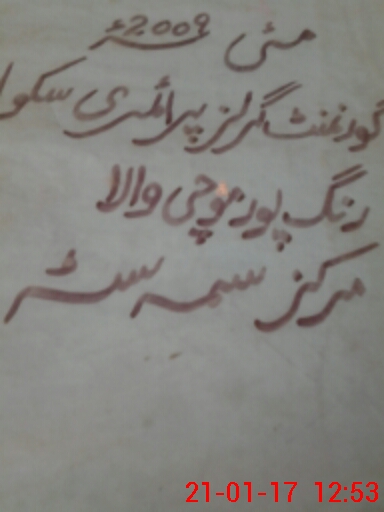 مئی 2009ء
گورنمنٹ گرلز پرائمری سکو
رنگ پور موچی والا
مرکز سمہ سٹہ
21-01-17 12:53